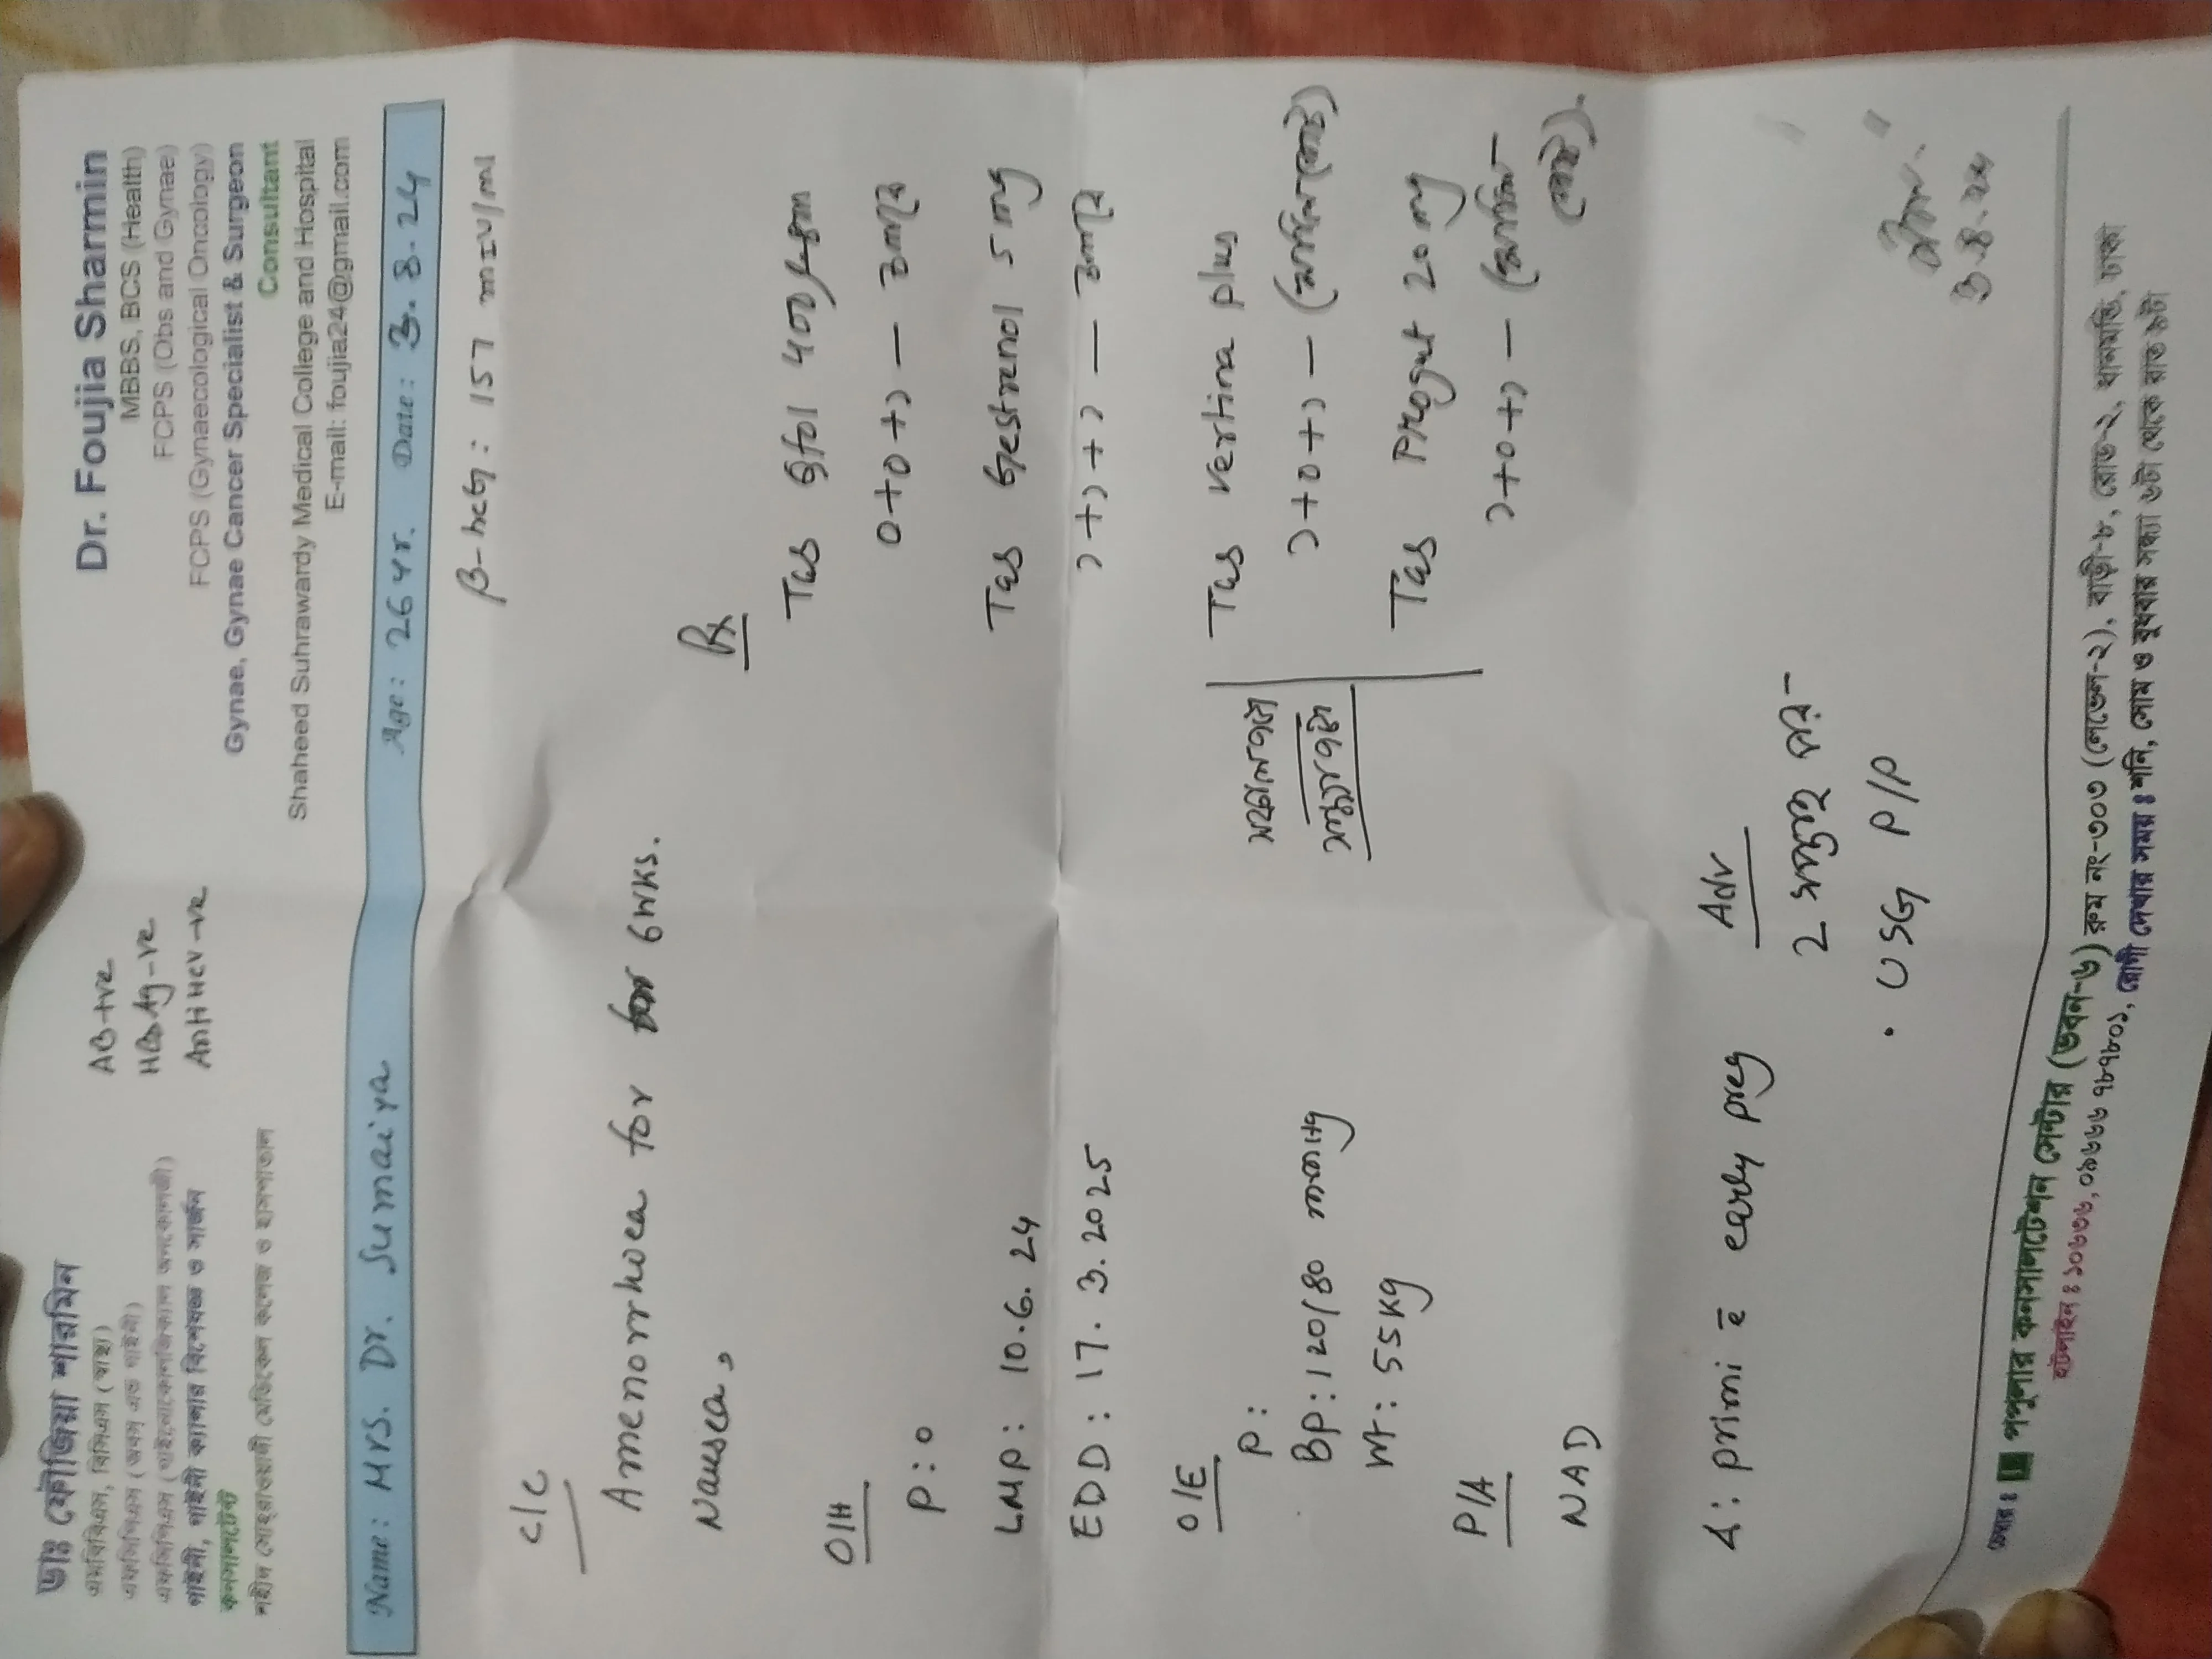 ডাঃ ফৌজিয়া শারমিন
এমবিবিএস, বিসিএস (স্বাস্থ্য)
এফসিপিএস (অবস্ এন্ড গাইনী)
এফসিপিএস (গাইনোকোলজিক্যাল অনকোলজী)
গাইনী, গাইনী ক্যান্সার বিশেষজ্ঞ ও সার্জন
কনসালটেন্ট
শহীদ সোহ্‌রাওয়ার্দী মেডিকেল কলেজ ও হাসপাতাল
AB+ve
HBsAg-ve
Anti HCV-ve
Dr. Foujia Sharmin
MBBS, BCS (Health)
FCPS (Obs and Gynae)
FCPS (Gynaecological Oncology)
Gynae, Gynae Cancer Specialist & Surgeon
Consultant
Shaheed Suhrawardy Medical College and Hospital
E-mail: foujia24@gmail.com
Name: Mrs. Dr. Sumaiya Age: 26 Yr. Date: 3.8.24
β-hCG: 157 mIU/ml
C/C
Amenorrhoea for for 6wks.
Nausea,
O/H
P: 0
LMP: 10.6.24
EDD: 17.3.2025
O/E
P:
BP: 120/80 mmHg
Wt: 55 kg
P/A
NAD
Δ: primi c̄ early preg
Rx
Tab
0+0+১
Tab Gestrenol 5 mg
১+১+১
সকালবেলা
সন্ধ্যাবেলা
Tab Vertina plus
১+0+১
Tab Progut 20 mg
১+0+১
Adv
2 সপ্তাহ পর-
• USG P/P
3.8.24
চেম্বার ঃ পপুলার কনসালটেশন সেন্টার (ভবন-৬) রুম নং-৩০৩ (লেভেল-২), বাড়ী-৮, রোড-২, ধানমন্ডি, ঢাকা
হটলাইন ঃ ১০৬৩৬, ০৯৬৬৬ ৭৮৭৮০১, রোগী দেখার সময় ঃ শনি, সোম ও বুধবার সন্ধ্যা ৬টা থেকে রাত ৯টা